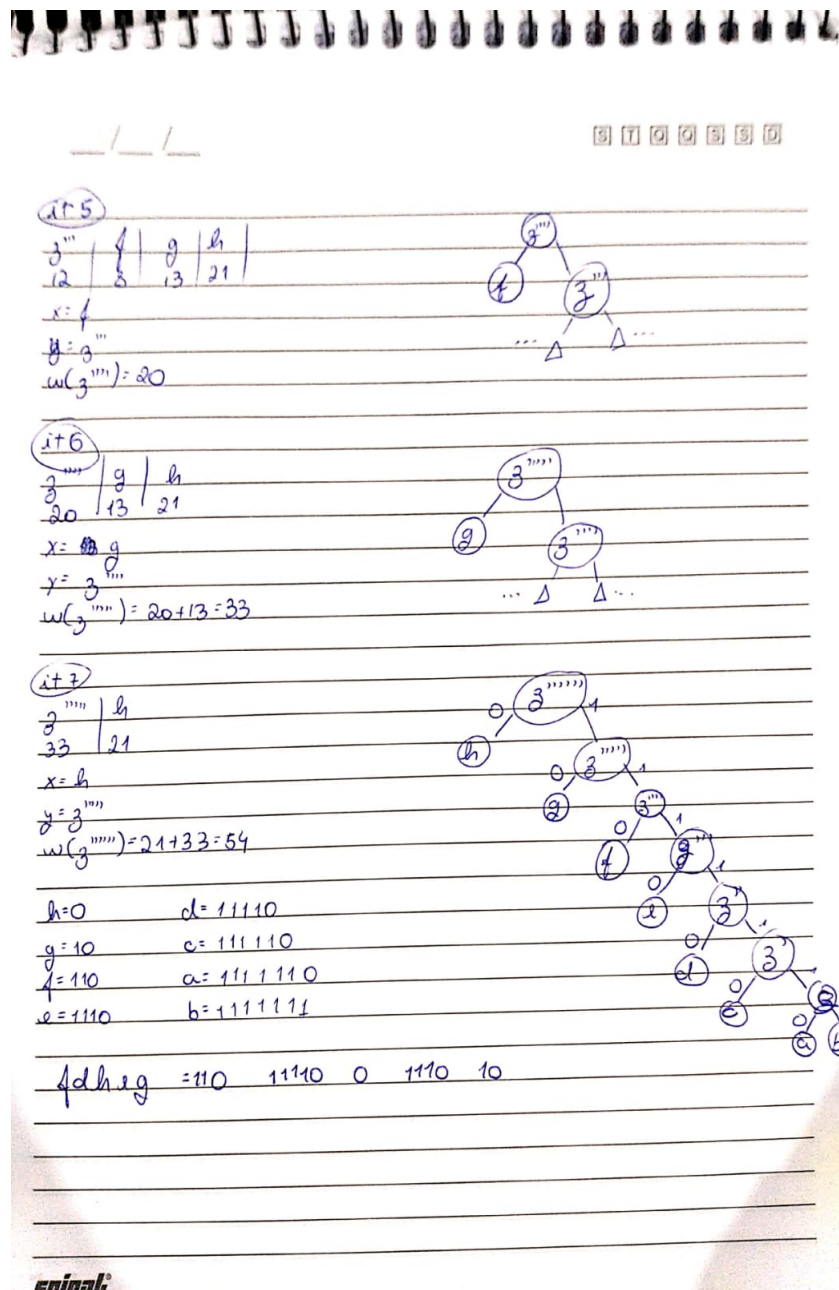 __/__/__ S T Q Q S S D
it 5
z''' | f | g | h |
12 | 8 | 13 | 21 |
x = f
y = z'''
w(z'''') = 20
z''''
f z'''
... Δ Δ ...
it 6
z'''' | g | h
20 | 13 | 21
x = g
y = z''''
w(z''''') = 20+13=33
z'''''
g z''''
... Δ Δ ...
it 7
z''''' | h
33 | 21
x = h
y = z'''''
w(z'''''') = 21+33=54
z''''''
0 1
h z'''''
0 1
g z''''
0 1
f z'''
0 1
e z''
0 1
d z'
0 1
c z
0
a b
h=0 d= 11110
g= 10 c= 111110
f= 110 a= 1111110
e= 1110 b= 1111111
fdheg =110 11110 0 1110 10
spiral®